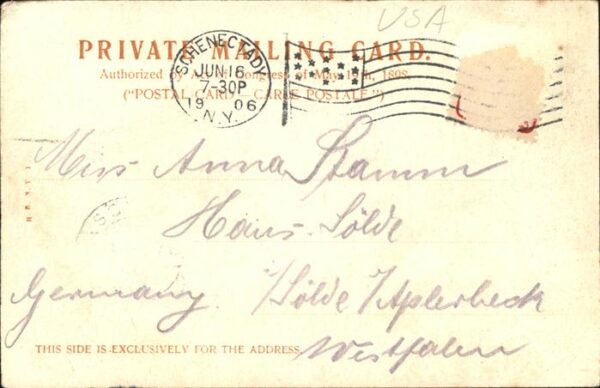 USA
PRIVATE MAILING CARD.
Authorized by Act of Congress of May 19th, 1898.
("POSTAL CARD—CARTE POSTALE")
SCHENECTADY
JUN 16
7-30P
19 06
N.Y.
Miss Anna Stamm
Haus-Sölde
Germany. Sölde / Aplerbeck
THIS SIDE IS EXCLUSIVELY FOR THE ADDRESS
Westfalen